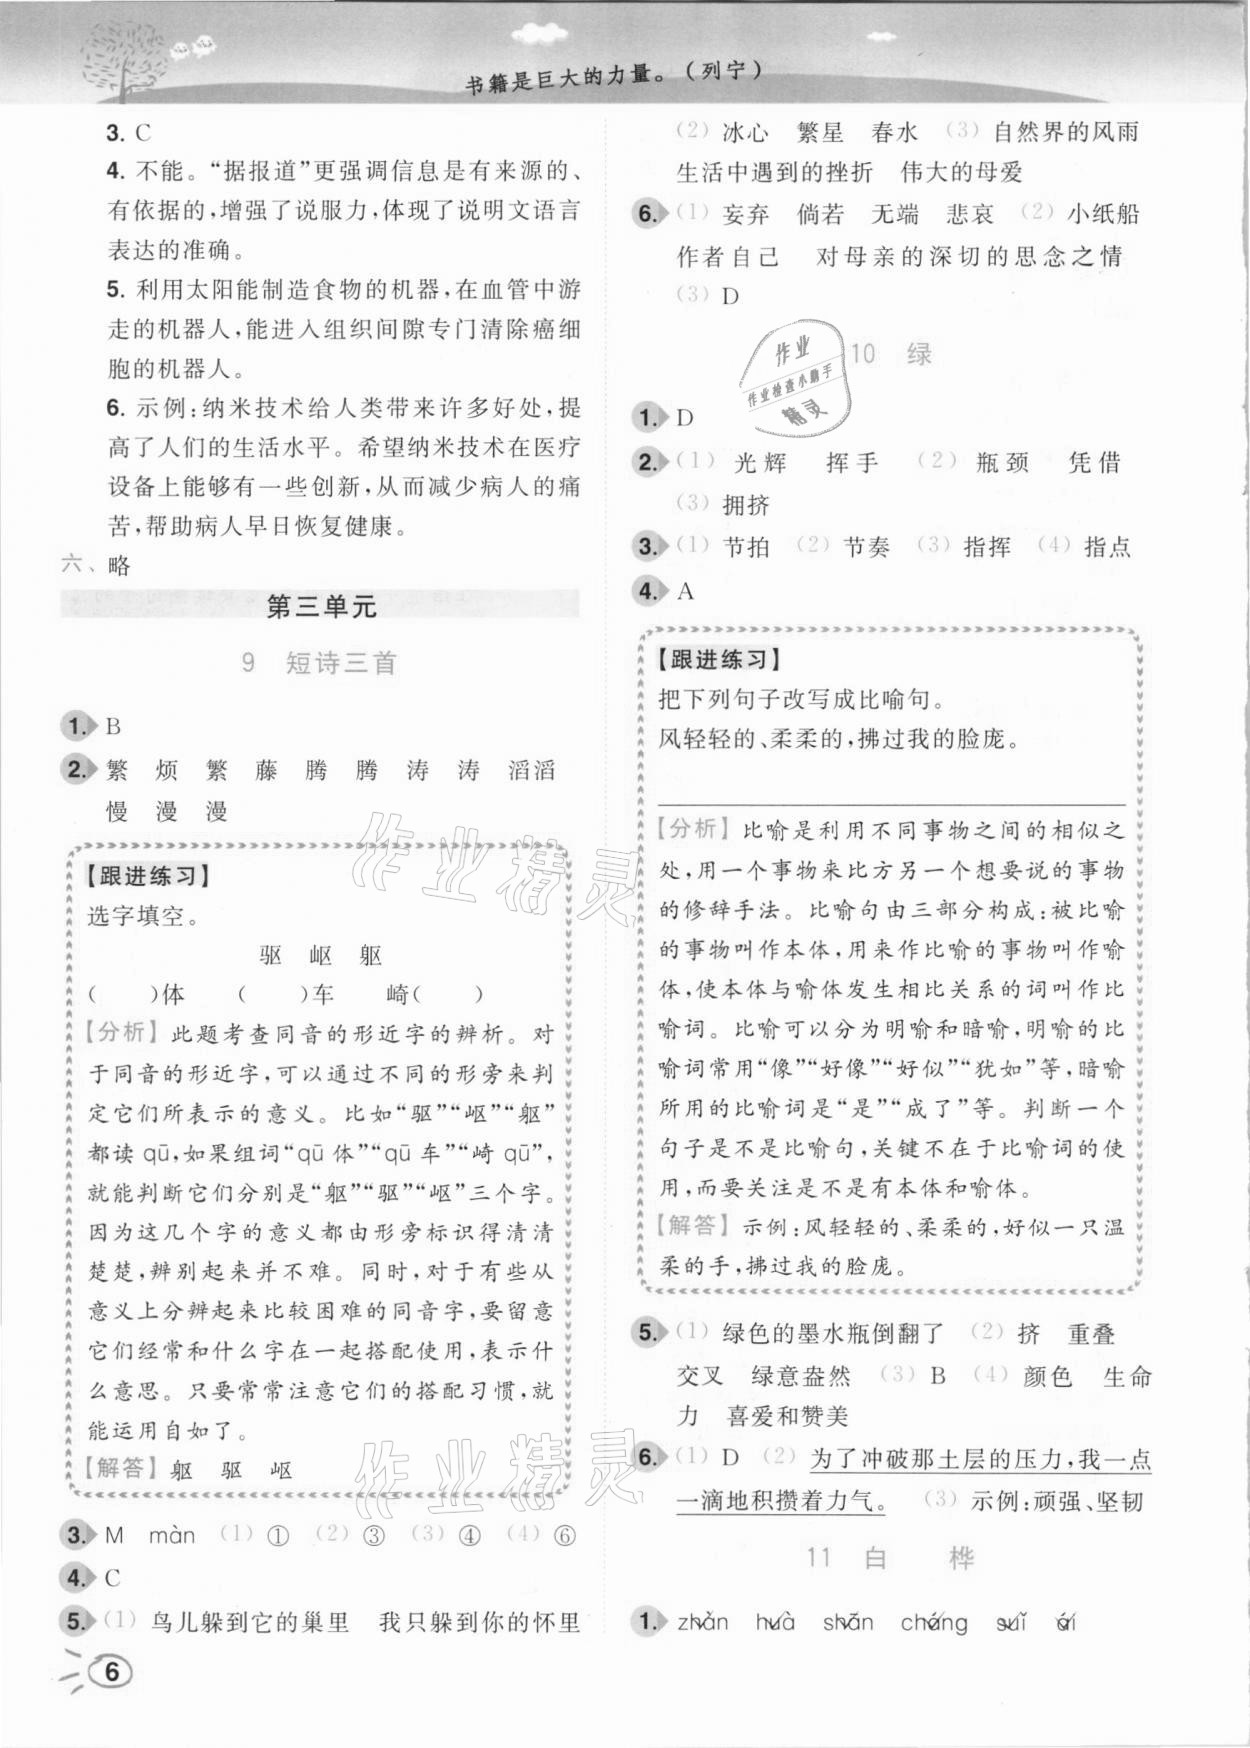 书籍是巨大的力量。(列宁)
3. C
4. 不能。“据报道”更强调信息是有来源的、
有依据的,增强了说服力,体现了说明文语言
表达的准确。
5. 利用太阳能制造食物的机器,在血管中游
走的机器人,能进入组织间隙专门清除癌细
胞的机器人。
6. 示例:纳米技术给人类带来许多好处,提
高了人们的生活水平。希望纳米技术在医疗
设备上能够有一些创新,从而减少病人的痛
苦,帮助病人早日恢复健康。
六、略
第三单元
9 短诗三首
1. B
2. 繁 烦 繁 藤 腾 腾 涛 涛 滔滔
慢 漫 漫
【跟进练习】
选字填空。
驱 岖 躯
( )体 ( )车 崎( )
【分析】 此题考查同音的形近字的辨析。对
于同音的形近字,可以通过不同的形旁来判
定它们所表示的意义。比如“驱”“岖”“躯”
都读 qū,如果组词“qū 体”“qū 车”“崎 qū”,
就能判断它们分别是“躯”“驱”“岖”三个字。
因为这几个字的意义都由形旁标识得清清
楚楚,辨别起来并不难。同时,对于有些从
意义上分辨起来比较困难的同音字,要留意
它们经常和什么字在一起搭配使用,表示什
么意思。只要常常注意它们的搭配习惯,就
能运用自如了。
【解答】 躯 驱 岖
3. M màn (1) ① (2) ③ (3) ④ (4) ⑥
4. C
5. (1) 鸟儿躲到它的巢里 我只躲到你的怀里
6
(2) 冰心 繁星 春水 (3) 自然界的风雨
生活中遇到的挫折 伟大的母爱
6. (1) 妄弃 倘若 无端 悲哀 (2) 小纸船
作者自己 对母亲的深切的思念之情
(3) D
10 绿
1. D
2. (1) 光辉 挥手 (2) 瓶颈 凭借
(3) 拥挤
3. (1) 节拍 (2) 节奏 (3) 指挥 (4) 指点
4. A
【跟进练习】
把下列句子改写成比喻句。
风轻轻的、柔柔的,拂过我的脸庞。
【分析】 比喻是利用不同事物之间的相似之
处,用一个事物来比方另一个想要说的事物
的修辞手法。比喻句由三部分构成:被比喻
的事物叫作本体,用来作比喻的事物叫作喻
体,使本体与喻体发生相比关系的词叫作比
喻词。比喻可以分为明喻和暗喻,明喻的比
喻词常用“像”“好像”“好似”“犹如”等,暗喻
所用的比喻词是“是”“成了”等。判断一个
句子是不是比喻句,关键不在于比喻词的使
用,而要关注是不是有本体和喻体。
【解答】 示例:风轻轻的、柔柔的,好似一只温
柔的手,拂过我的脸庞。
5. (1) 绿色的墨水瓶倒翻了 (2) 挤 重叠
交叉 绿意盎然 (3) B (4) 颜色 生命
力 喜爱和赞美
6. (1) D (2) 为了冲破那土层的压力,我一点
一滴地积攒着力气。 (3) 示例:顽强、坚韧
11 白 桦
1.
作业
作业检查小助手
精灵
作业精灵
作业精灵